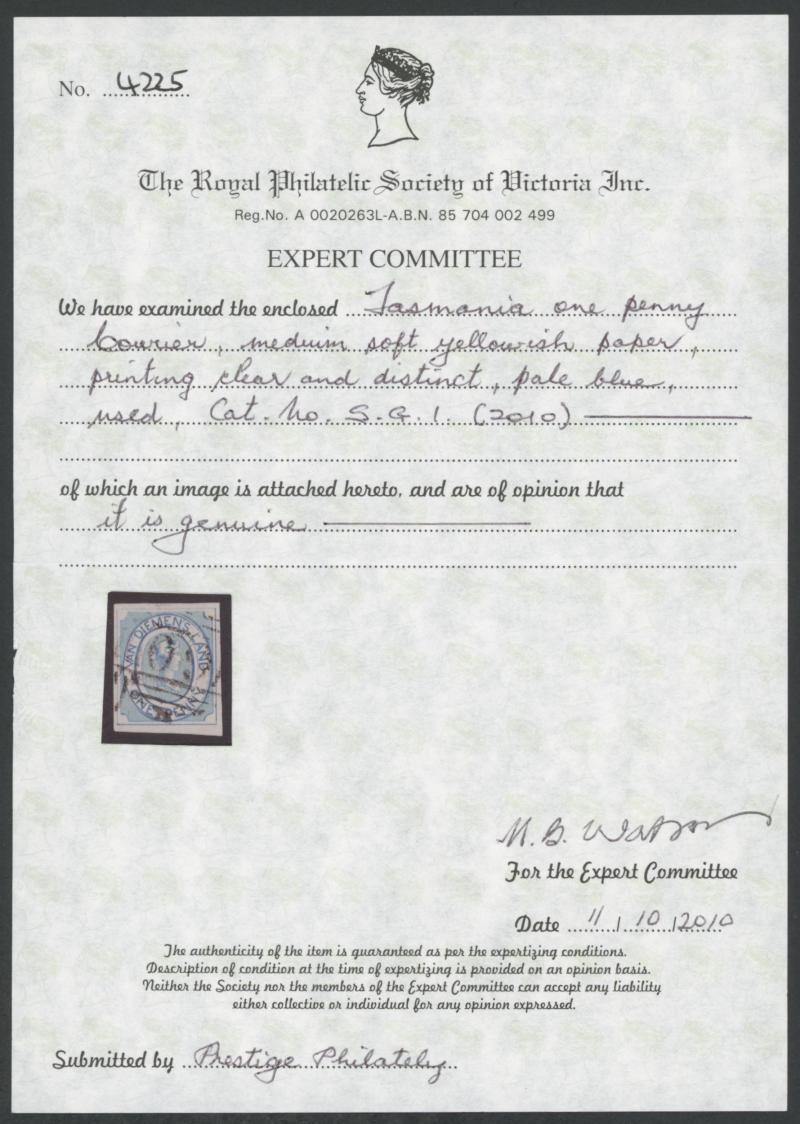 No. 4225
The Royal Philatelic Society of Victoria Inc.
Reg.No. A 0020263L-A.B.N. 85 704 002 499
EXPERT COMMITTEE
We have examined the enclosed Tasmania one penny
Courier, medium soft yellowish paper,
printing clear and distinct, pale blue,
used, Cat. No. S.G.1. (2010)
of which an image is attached hereto, and are of opinion that
it is genuine
VAN DIEMENS LAND
ONE PENNY
M. B. Watson
For the Expert Committee
Date 11 / 10 / 2010
The authenticity of the item is guaranteed as per the expertizing conditions.
Description of condition at the time of expertizing is provided on an opinion basis.
Neither the Society nor the members of the Expert Committee can accept any liability
either collective or individual for any opinion expressed.
Submitted by Prestige Philately